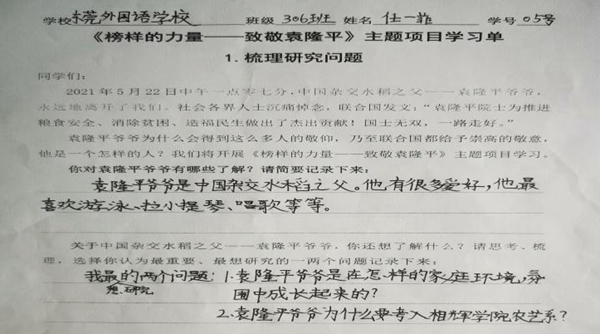 学校东莞外国语学校 班级306班 姓名任一菲 学号05号
《榜样的力量——致敬袁隆平》主题项目学习单
1.梳理研究问题
同学们：
2021年5月22日中午一点零七分，中国杂交水稻之父——袁隆平爷爷，
永远地离开了我们。社会各界人士沉痛悼念，联合国发文：“袁隆平院士为推进
粮食安全、消除贫困、造福民生做出了杰出贡献！国士无双，一路走好。”
袁隆平爷爷为什么会得到这么多人的敬仰，乃至联合国都给予崇高的敬意，
他是一个怎样的人？我们将开展《榜样的力量——致敬袁隆平》主题项目学习。
你对袁隆平爷爷有哪些了解？请简要记录下来：
袁隆平爷爷是中国杂交水稻之父。他有很多爱好，他最
喜欢游泳、拉小提琴、唱歌等等。
关于中国杂交水稻之父——袁隆平爷爷，你还想了解什么？请思考、梳
理，选择你认为最重要、最想研究的一两个问题记录下来：
我最想研究的两个问题：1.袁隆平爷爷是在怎样的家庭环境氛
围中成长起来的？
2.袁隆平爷爷为什么要考入相辉学院农艺系？